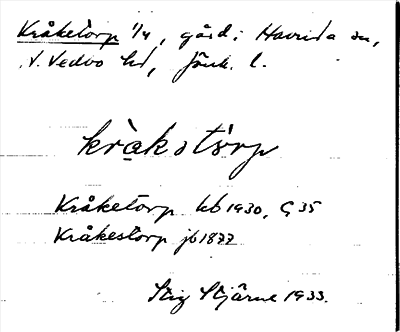 Kråketorp 1/4, gård i Haurida sn,
N. Vedbo hd, Jönk. l.
kråkstörp
Kråketorp kb 1930, G 35
Kråkestorp jb 1877
Stig Stjärne 1933.